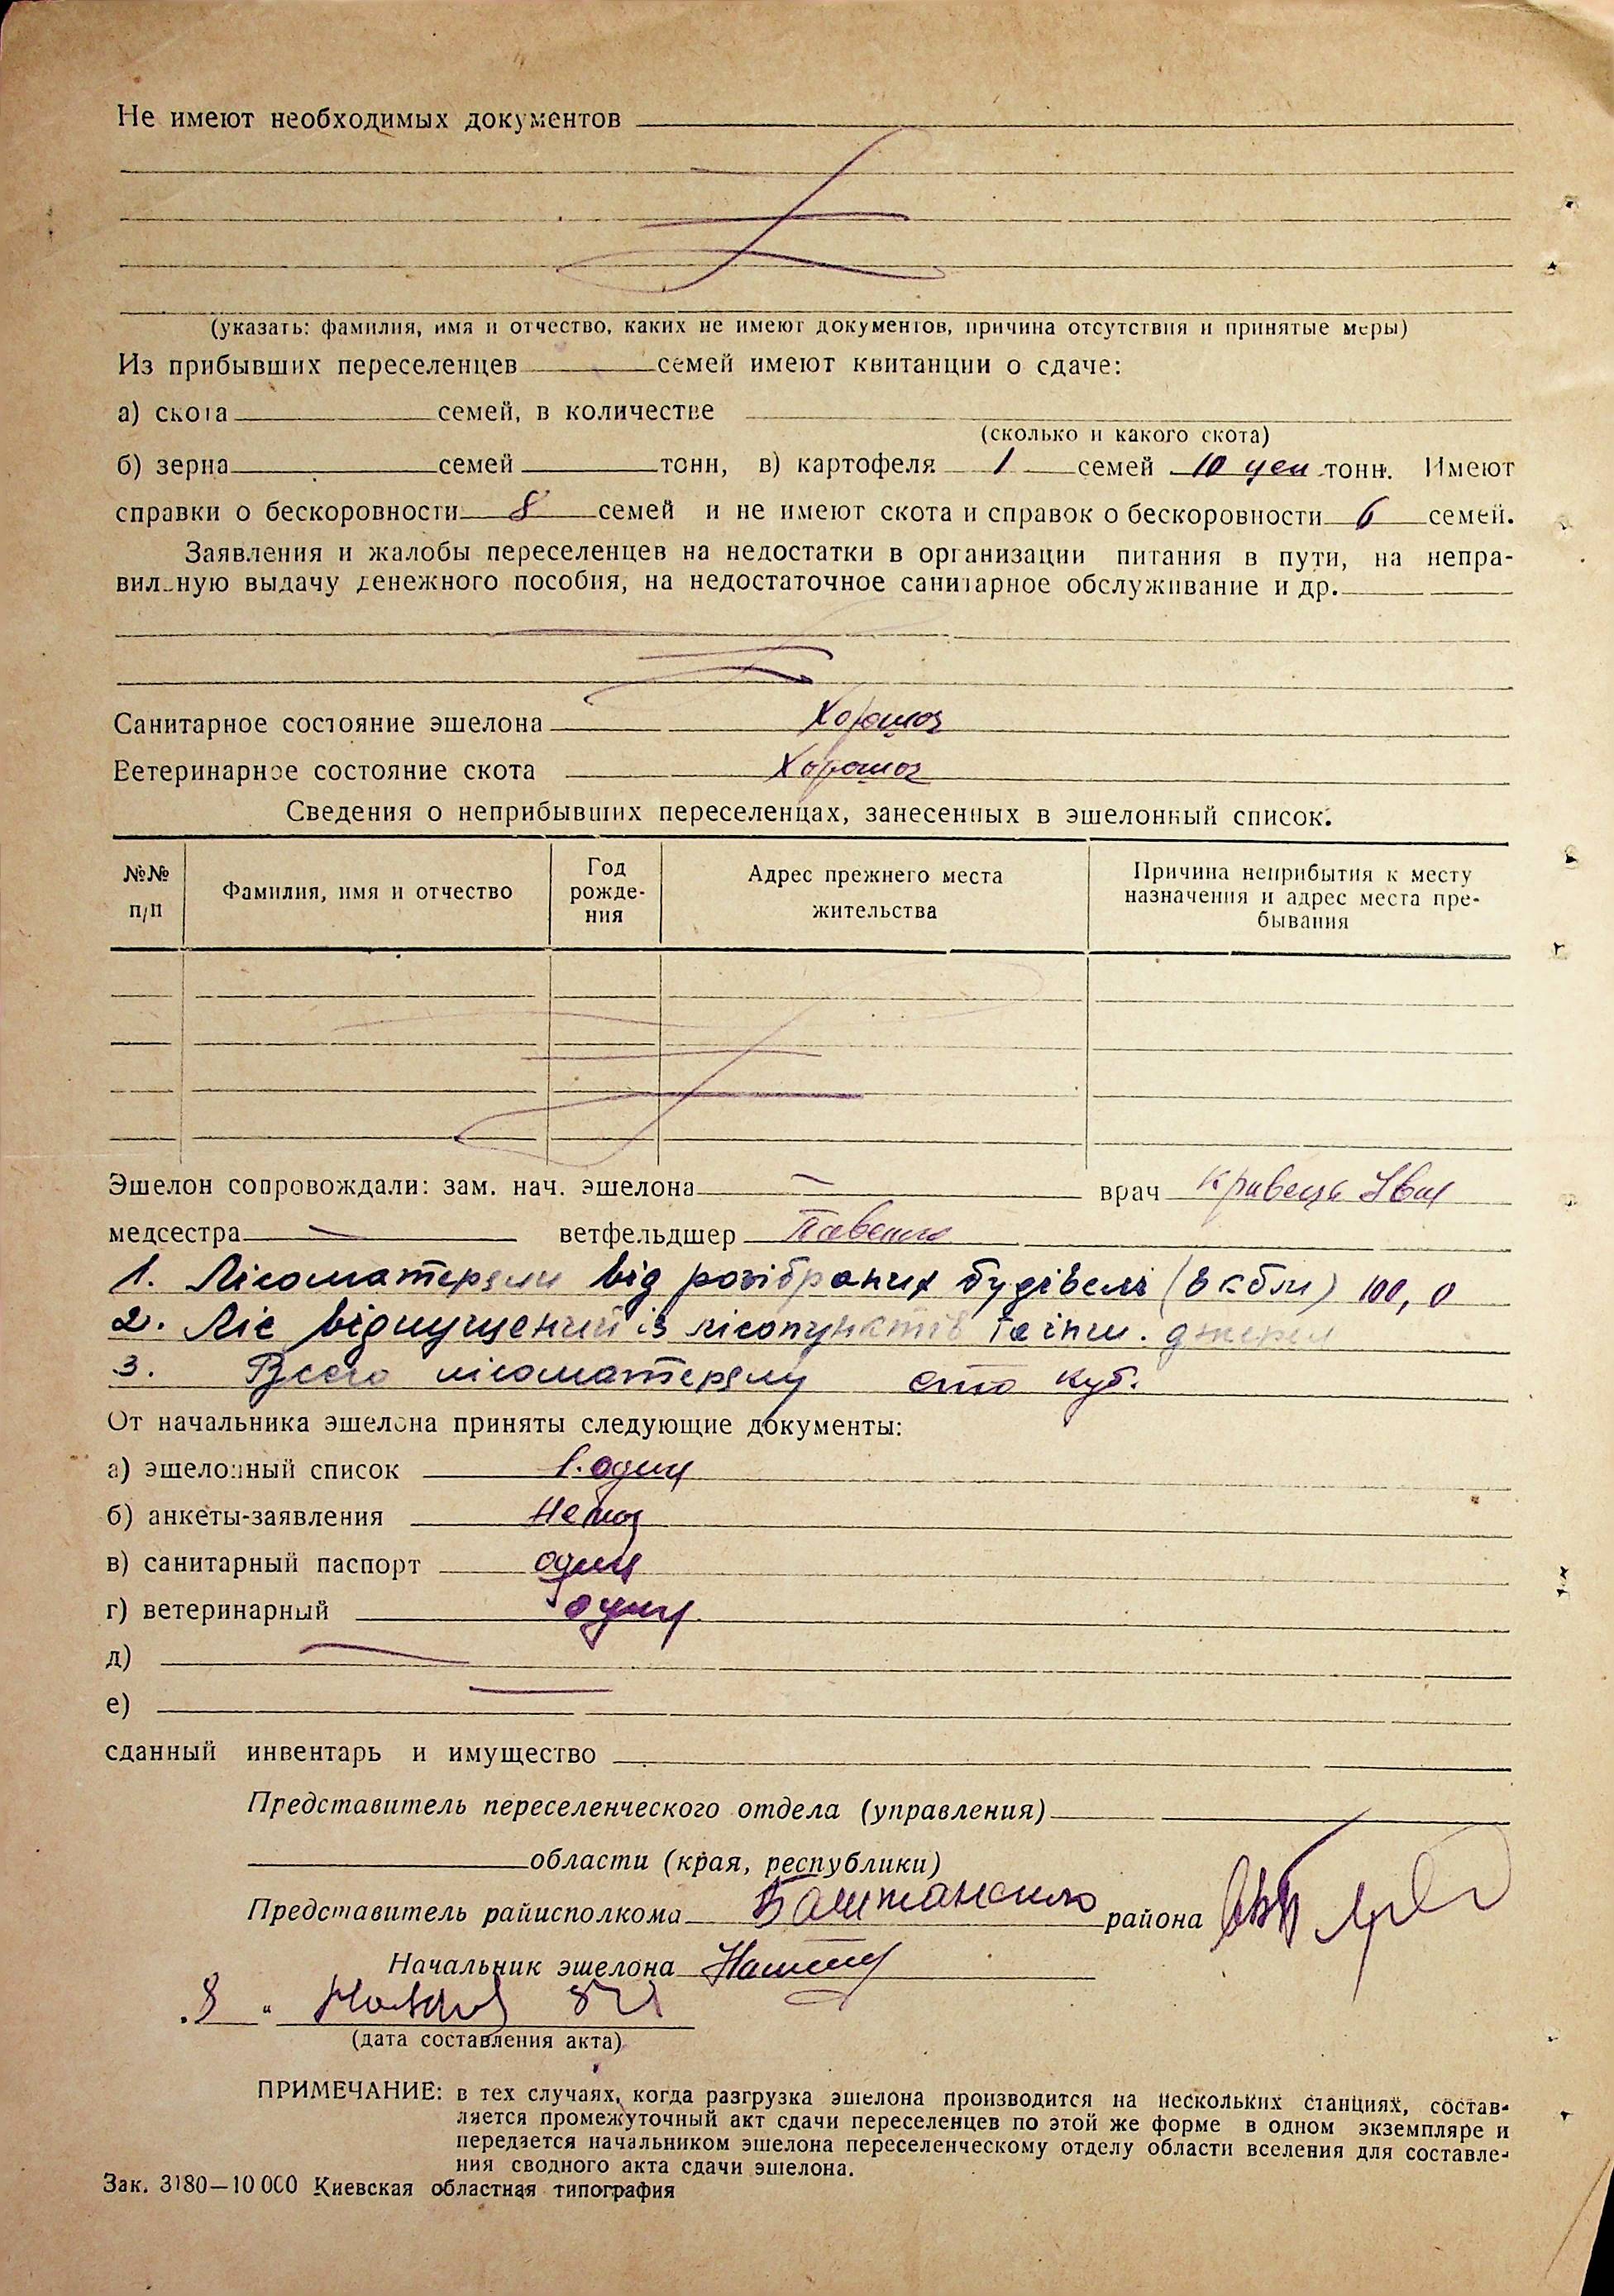 Не имеют необходимых документов
(указать: фамилия, имя и отчество, каких не имеют документов, причина отсутствия и принятые меры)
Из прибывших переселенцев семей имеют квитанции о сдаче:
а) скота семей, в количестве
(сколько и какого скота)
б) зерна семей тонн, в) картофеля 1 семей 10 цен тонн. Имеют
справки о бескоровности 8 семей и не имеют скота и справок о бескоровности 6 семей.
Заявления и жалобы переселенцев на недостатки в организации питания в пути, на непра-
вильную выдачу денежного пособия, на недостаточное санитарное обслуживание и др.
Санитарное состояние эшелона Хорошое
Ветеринарное состояние скота Хорошое
Сведения о неприбывших переселенцах, занесенных в эшелонный список.
№№ п/п
Фамилия, имя и отчество
Год рожде-
ния
Адрес прежнего места
жительства
Причина неприбытия к месту
назначения и адрес места пре-
бывания
Эшелон сопровождали: зам. нач. эшелона — врач Кравець
медсестра — ветфельдшер
1. Лісоматеряли від розібраних будівелі (в кбм) 100,0
2. Ліс відпущений із лісопунктів та інш. джерел
3. Всего лісоматерялу сто куб.
От начальника эшелона приняты следующие документы:
а) эшелонный список 1. один
б) анкеты-заявления Немає
в) санитарный паспорт один
г) ветеринарный один
д) —
е) —
сданный инвентарь и имущество
Представитель переселенческого отдела (управления)
области (края, республики)
Представитель райисполкома Баштанского района
Начальник эшелона
„8“
(дата составления акта)
ПРИМЕЧАНИЕ: в тех случаях, когда разгрузка эшелона производится на нескольких станциях, состав-
ляется промежуточный акт сдачи переселенцев по этой же форме в одном экземпляре и
передзется начальником эшелона переселенческому отделу области вселения для составле-
ния сводного акта сдачи эшелона.
Зак. 3180—10 000 Киевская областная типография